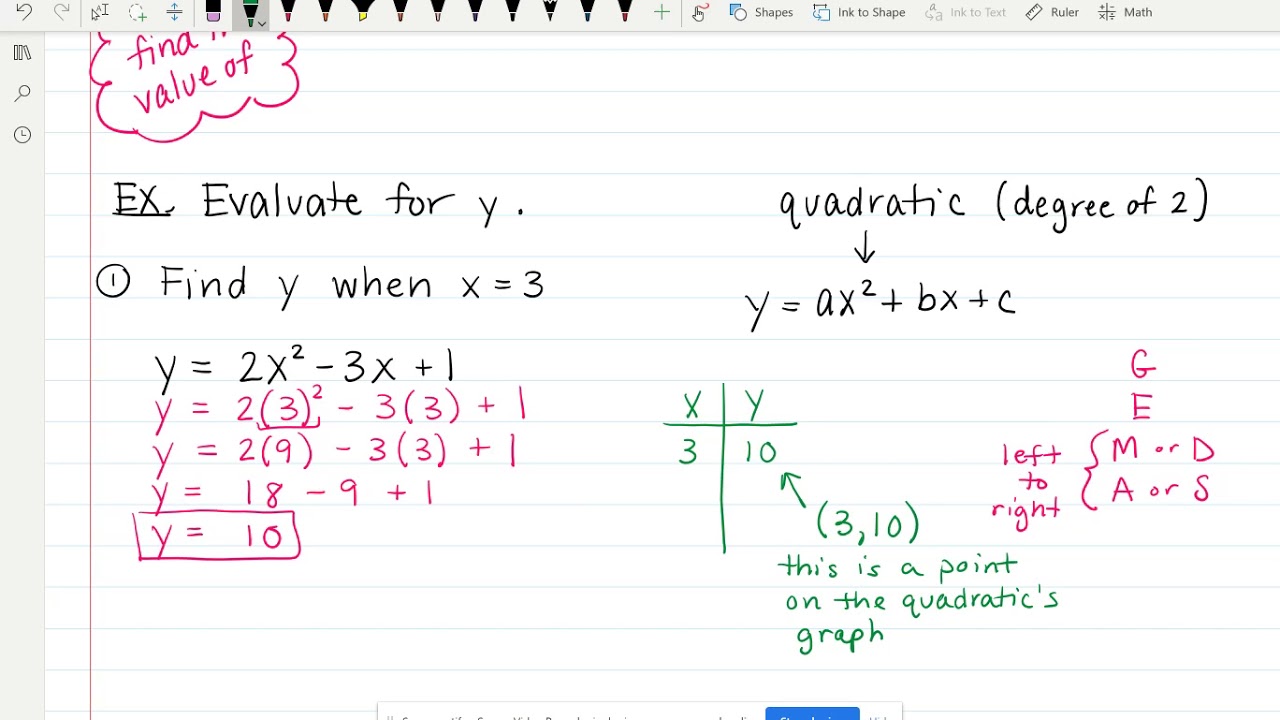 Shapes
Ink to Shape
Ink to Text
Ruler
Math
find
value of
EX. Evaluate for y.
quadratic (degree of 2)
↓
y = ax² + bx + c
① Find y when x = 3
y = 2x² - 3x + 1
y = 2(3)² - 3(3) + 1
y = 2(9) - 3(3) + 1
y = 18 - 9 + 1
y = 10
X Y
3 10
(3,10)
this is a point
on the quadratic's
graph
G
E
left
to
right
M or D
A or S